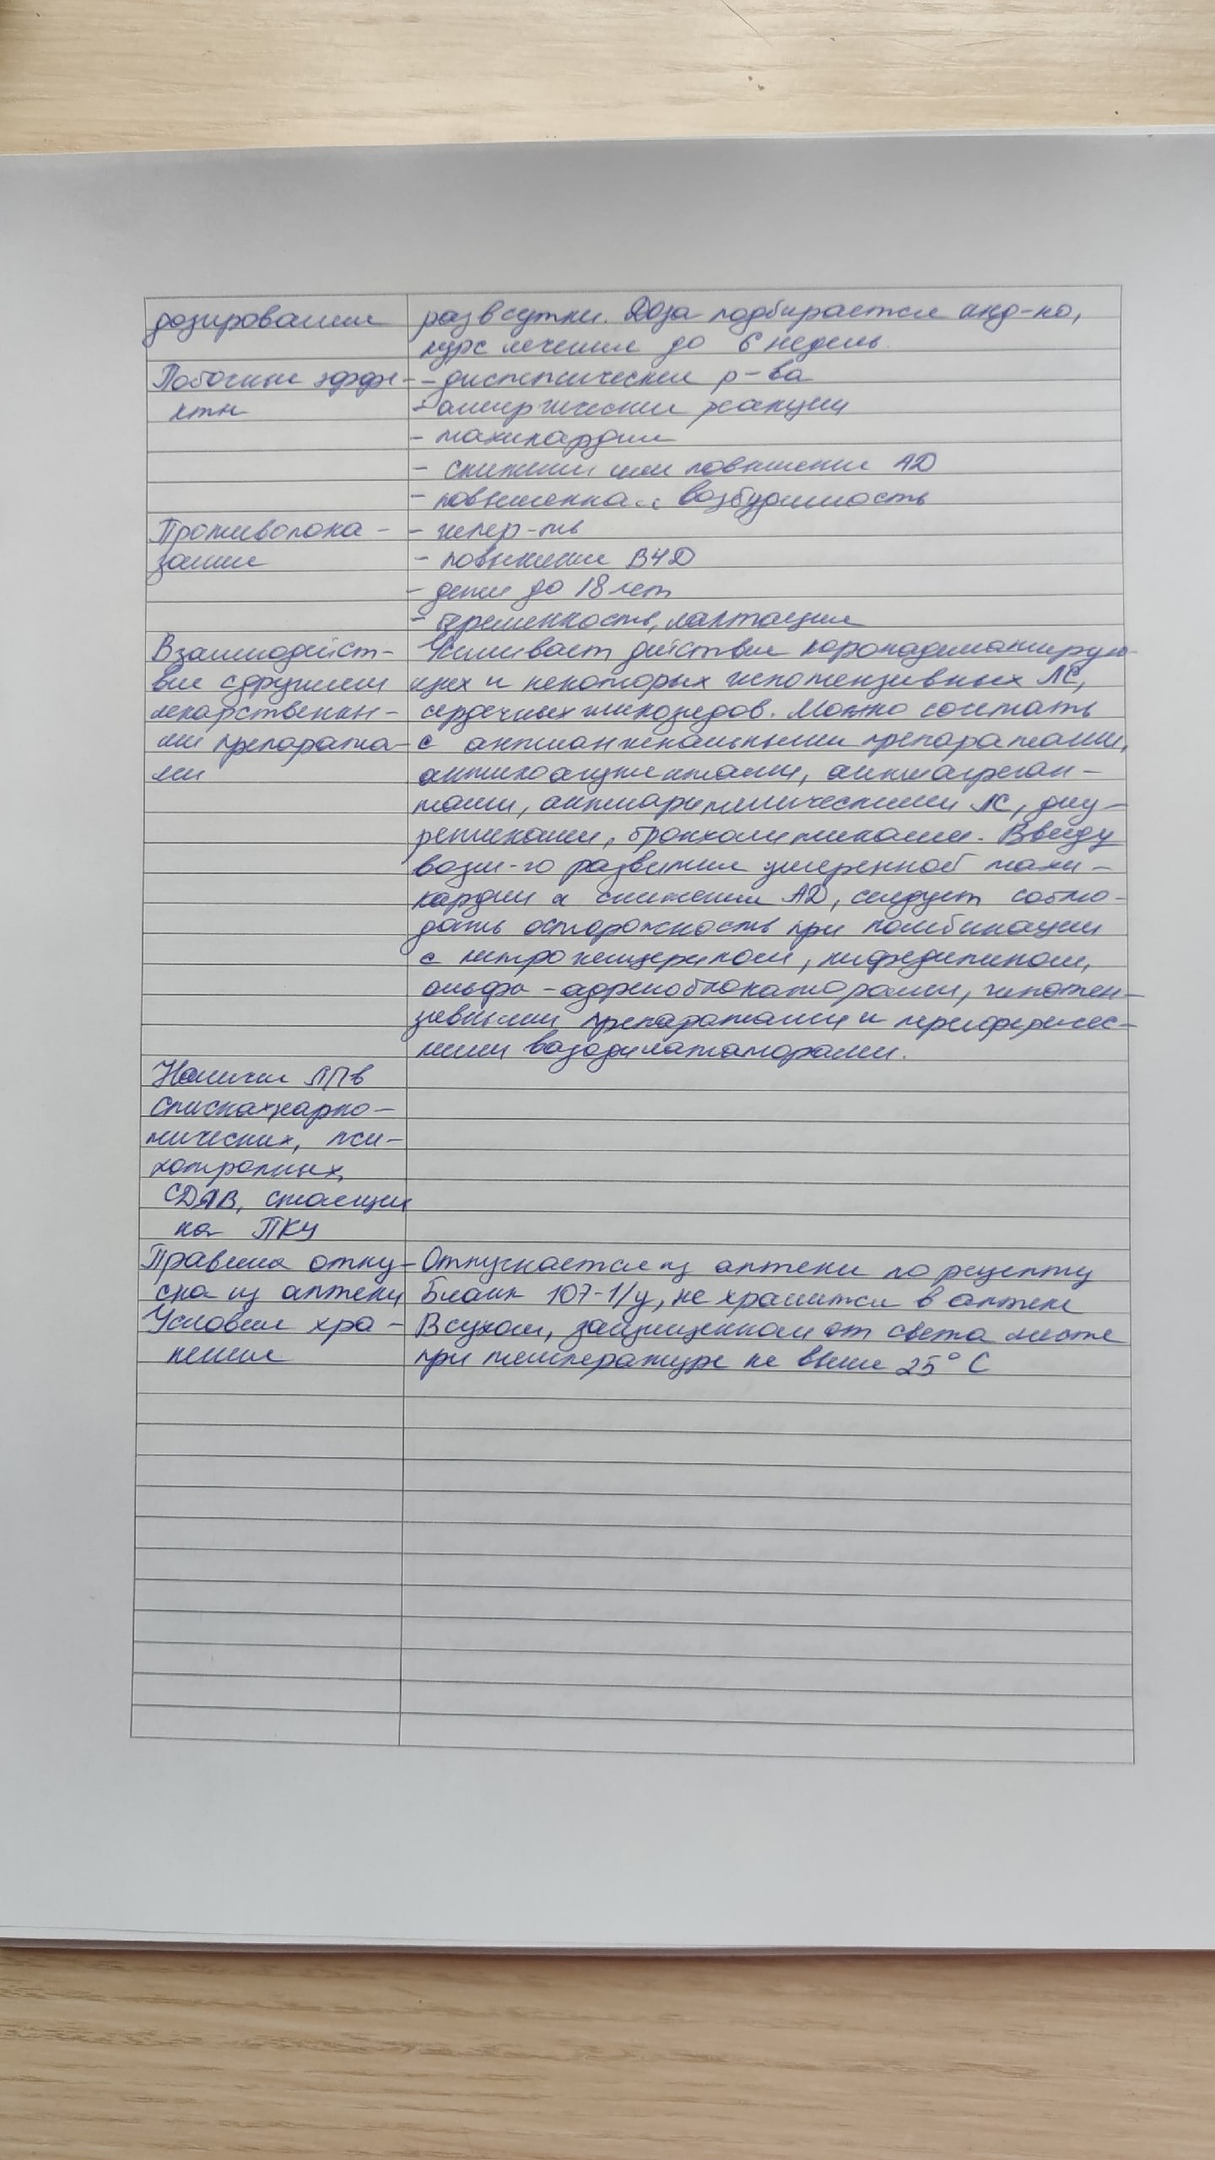 дозирования
раз в сутки. Доза подбирается инд-но,
курс лечения до 6 недель.
Побочные эффе-
кты
- диспепсические р-ва
- аллергические реакции
- тахикардия
- снижение или повышение АД
- повышенная возбудимость
Противопока-
зания
- гипер-ть
- повышение ВЧД
- дети до 18 лет
- беременность, лактация
Взаимодейст-
вие с другими
лекарственны-
ми препарата-
ми
Усиливает действие коронадилатирую-
щих и некоторых гипотензивных ЛС,
сердечных гликозидов. Можно сочетать
с антиангинальными препаратами,
антикоагулянтами, антиагреган-
тами, антиаритмическими ЛС, диу-
ретиками, бронхолитиками. Ввиду
возм-го развития умеренной тахи-
кардии и снижения АД, следует соблю-
дать осторожность при комбинации
с нитроглицерином, нифедипином,
альфа-адреноблокаторами, гипотен-
зивными препаратами и перифериче-
скими вазодилататорами.
Наличие ЛП в
списках нарко-
тических, пси-
хотропных,
СДЯВ, стоящих
на ПКУ
Правила отпу-
ска из аптеки
Отпускается из аптеки по рецепту
Бланк 107-1/у, не хранится в аптеке
Условия хра-
нения
В сухом, защищенном от света месте
при температуре не выше 25°C